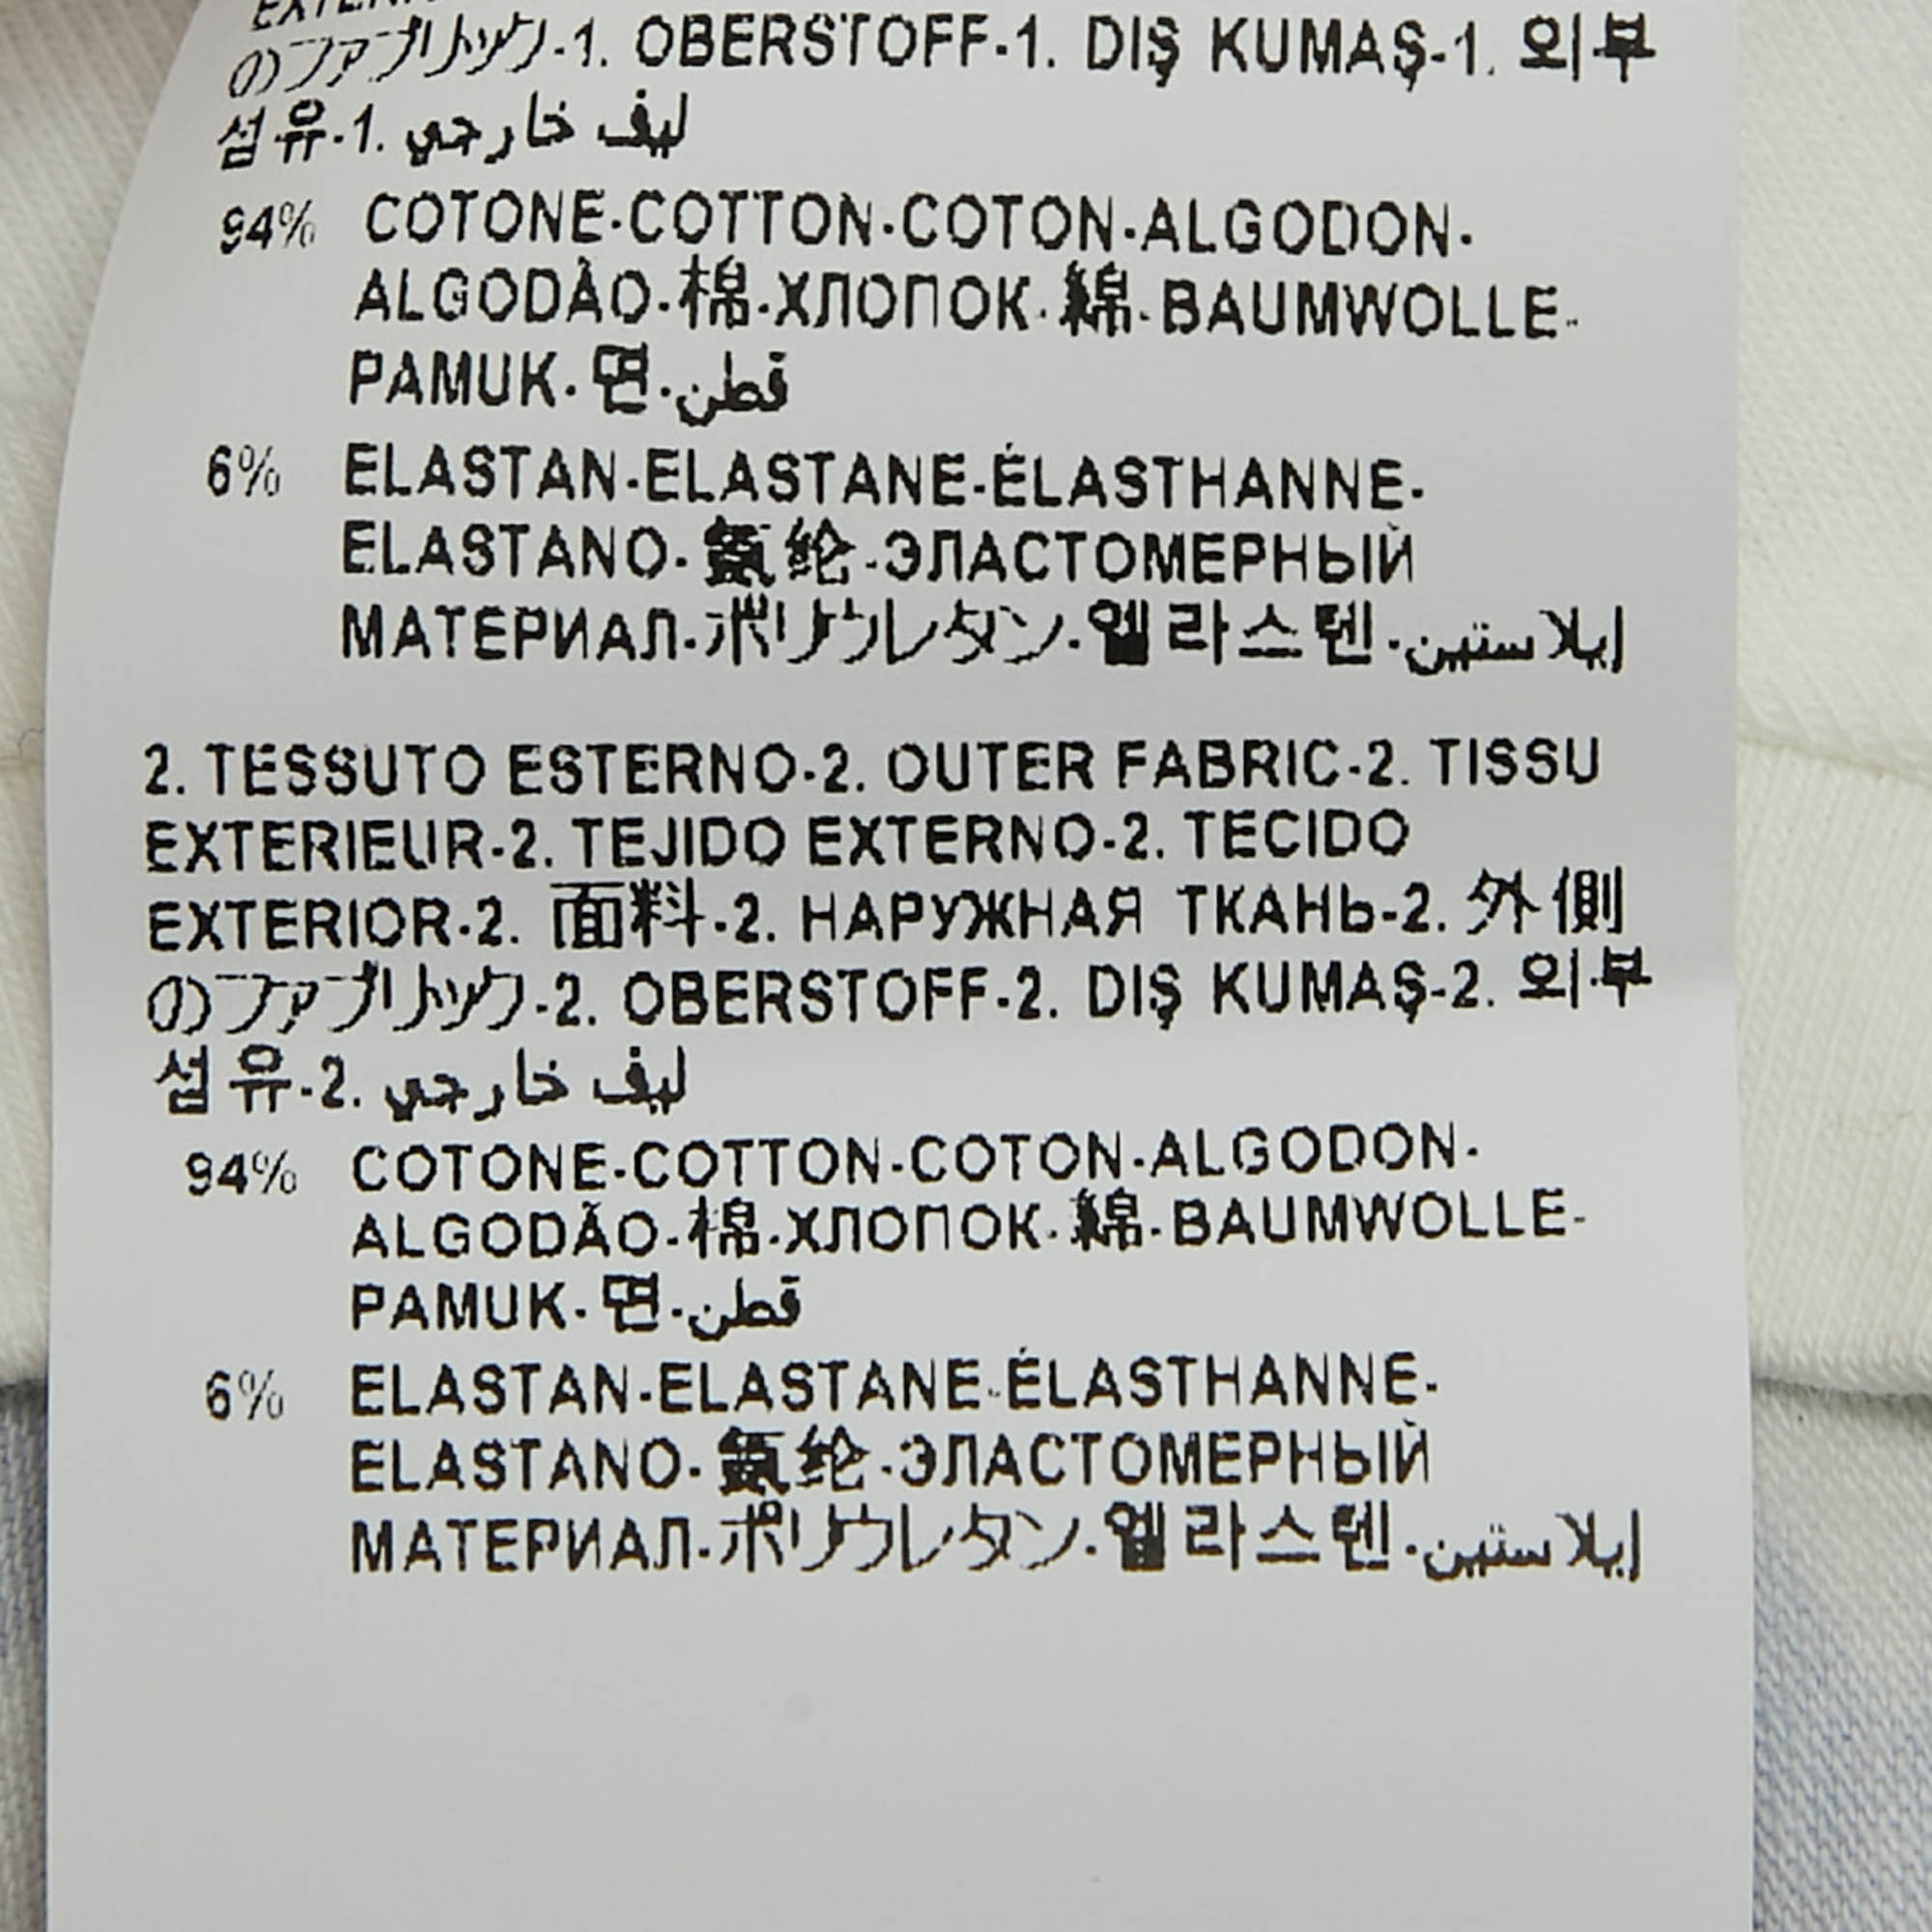 のファブリック-1. OBERSTOFF-1. DIŞ KUMAŞ-1. 외부
섬유-1. ليف خارجي
94% COTONE-COTTON-COTON-ALGODON-
ALGODÃO-棉-ХЛОПОК-綿-BAUMWOLLE-
PAMUK-면-قطن
6% ELASTAN-ELASTANE-ÉLASTHANNE-
ELASTANO-氨纶-ЭЛАСТОМЕРНЫЙ
МАТЕРИАЛ-ポリウレタン-엘라스텐-إيلاستين
2. TESSUTO ESTERNO-2. OUTER FABRIC-2. TISSU
EXTERIEUR-2. TEJIDO EXTERNO-2. TECIDO
EXTERIOR-2. 面料-2. НАРУЖНАЯ ТКАНЬ-2. 外側
のファブリック-2. OBERSTOFF-2. DIŞ KUMAŞ-2. 외부
섬유-2. ليف خارجي
94% COTONE-COTTON-COTON-ALGODON-
ALGODÃO-棉-ХЛОПОК-綿-BAUMWOLLE-
PAMUK-면-قطن
6% ELASTAN-ELASTANE-ÉLASTHANNE-
ELASTANO-氨纶-ЭЛАСТОМЕРНЫЙ
МАТЕРИАЛ-ポリウレタン-엘라스텐-إيلاستين